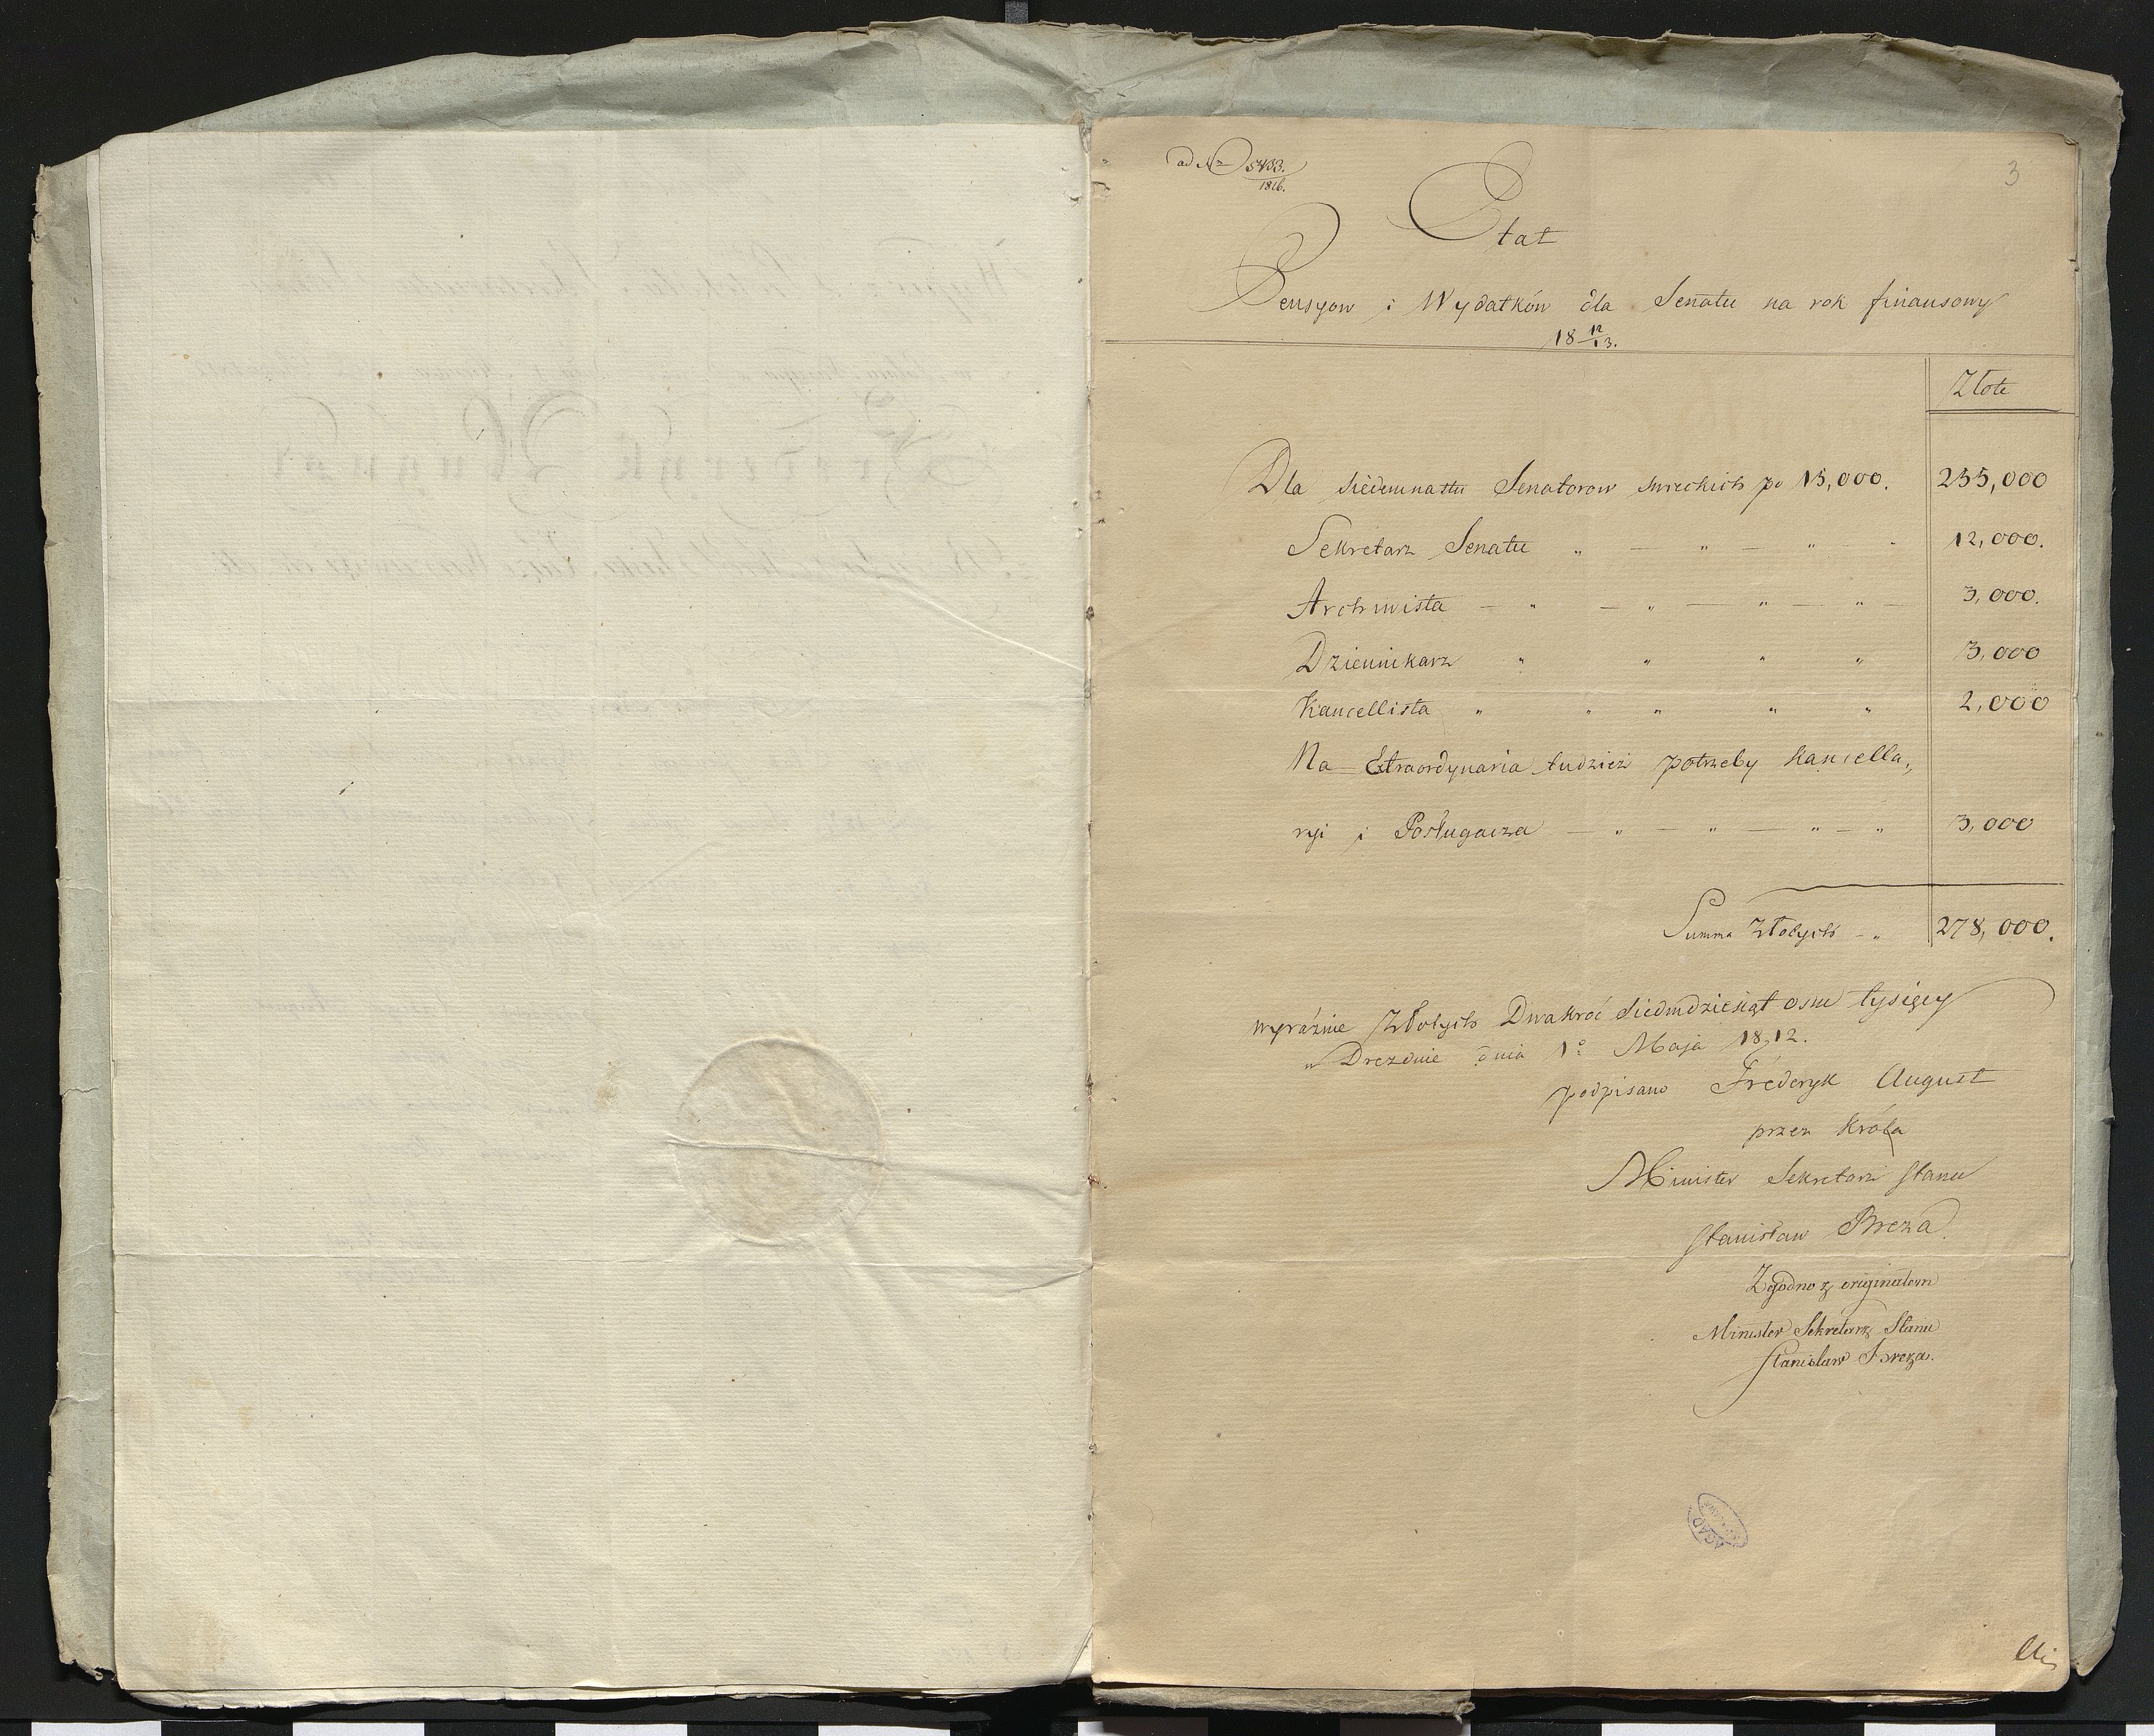 ad Nr 5433.
1816.
3
Etat
Pensyow i Wydatków dla Senatu na rok finansowy
18 12/13.
Złote
Dla siedemnastu Senatorow swieckich po 15,000. 255,000
Sekretarz Senatu " — " — " - 12,000.
Archiwista — " — " — " — " — 3,000.
Dziennikarz " " " " 3,000
Kancellista " " " " " 2,000
Na Extraordynaria tudzież potrzeby kancella,,
ryi i Posługacza — " — " — " — " 3,000
Summa Złotych - " 278,000.
wyraźnie Złotych Dwakroć siedmdziesiąt osm tysięcy
w Dreznie dnia 1o Maja 1812.
podpisano Frederyk August
przez Króla
Minister Sekretarz Stanu
Stanisław Breza.
Zgodno z originałem
Minister Sekretarz Stanu
Stanisław Breza.
AGAD